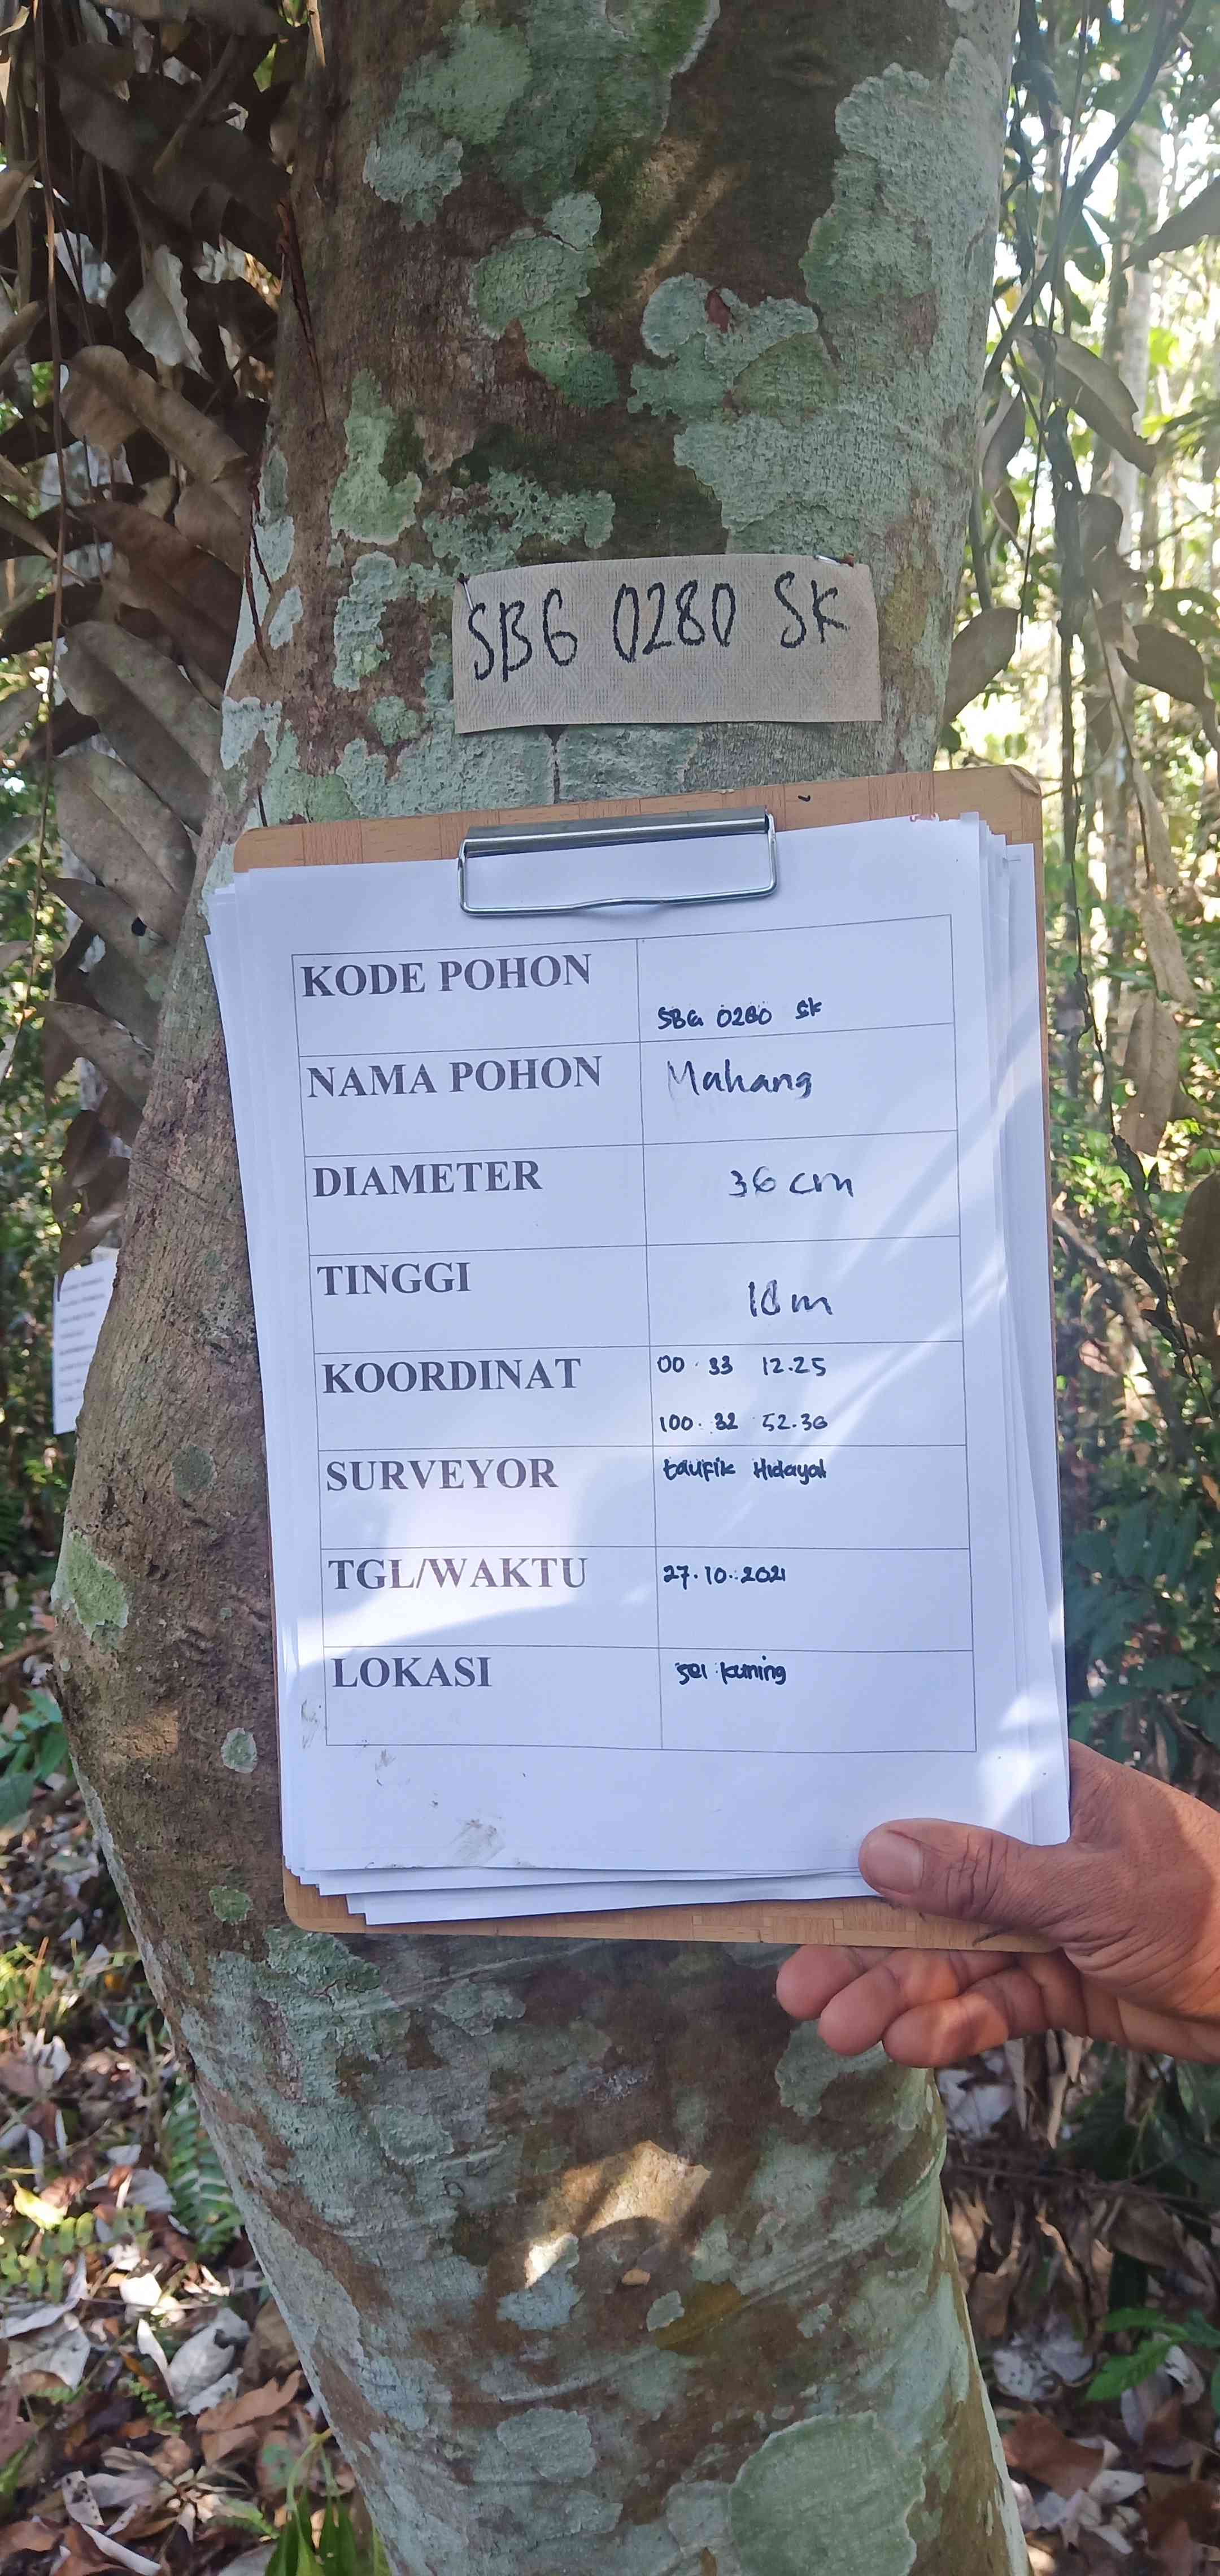 SBG 0280 SK
KODE POHON
SBG 0280 SK
NAMA POHON
Mahang
DIAMETER
36 cm
TINGGI
KOORDINAT
00 . 33 12.25
100. 32 52.36
SURVEYOR
taufik Hidayat
TGL/WAKTU
27.10.2021
LOKASI
sei kuning